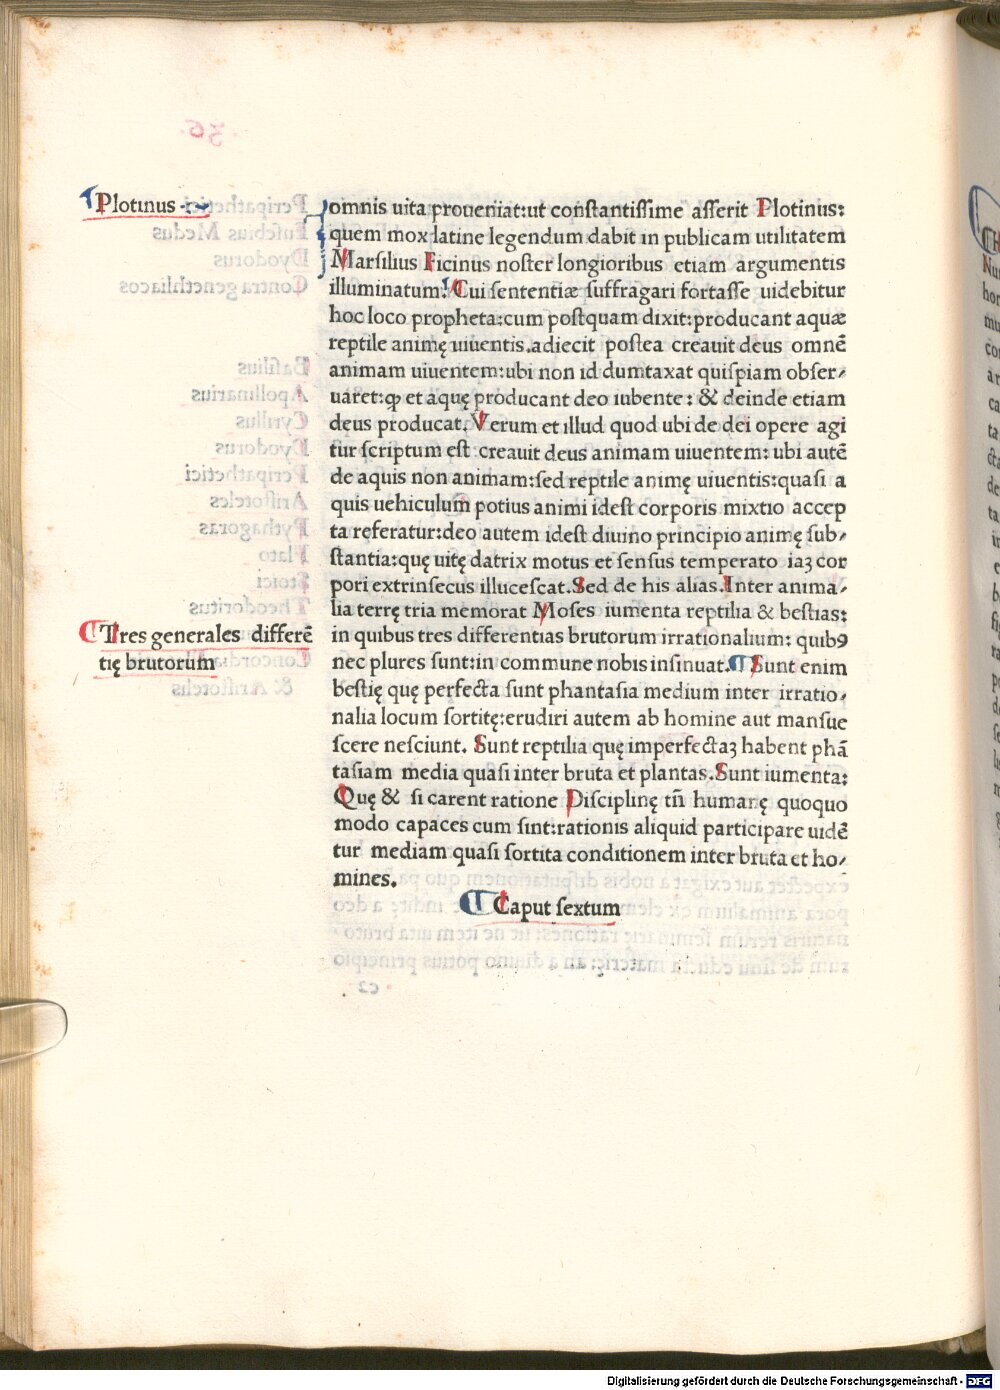 Plotinus
omnis uita proueniat:ut constantissime asserit Plotinus:
quem mox latine legendum dabit in publicam utilitatem
Marsilius Ficinus noster longioribus etiam argumentis
illuminatum. Cui sententiæ suffragari fortasse uidebitur
hoc loco propheta:cum postquam dixit:producant aquæ
reptile animę uiuentis.adiecit postea creauit deus omnē
animam uiuentem:ubi non id dumtaxat quispiam obser/
uaret:ꝙ et aquę producant deo iubente: & deinde etiam
deus producat. Verum et illud quod ubi de dei opere agi
tur scriptum est creauit deus animam uiuentem: ubi autē
de aquis non animam:sed reptile animę uiuentis:quasi a
quis uehiculum potius animi idest corporis mixtio accep
ta referatur:deo autem idest diuino principio animę sub/
stantia:quę uitę datrix motus et sensus temperato iaꝫ cor
pori extrinsecus illucescat.Sed de his alias.Inter anima/
lia terrę tria memorat Moses iumenta reptilia & bestias:
¶ Tres generales differē
tię brutorum
in quibus tres differentias brutorum irrationalium: quibꝯ
nec plures sunt:in commune nobis insinuat.¶ Sunt enim
bestię quę perfecta sunt phantasia medium inter irratio/
nalia locum sortitę:erudiri autem ab homine aut mansue
scere nesciunt. Sunt reptilia quę imperfectaꝫ habent phā
tasiam media quasi inter bruta et plantas.Sunt iumenta:
Quę & si carent ratione Disciplinę tn̄ humanę quoquo
modo capaces cum sint:rationis aliquid participare uidē
tur mediam quasi sortita conditionem inter bruta et ho/
mines.
¶ Caput sextum
Digitalisierung gefördert durch die Deutsche Forschungsgemeinschaft - DFG